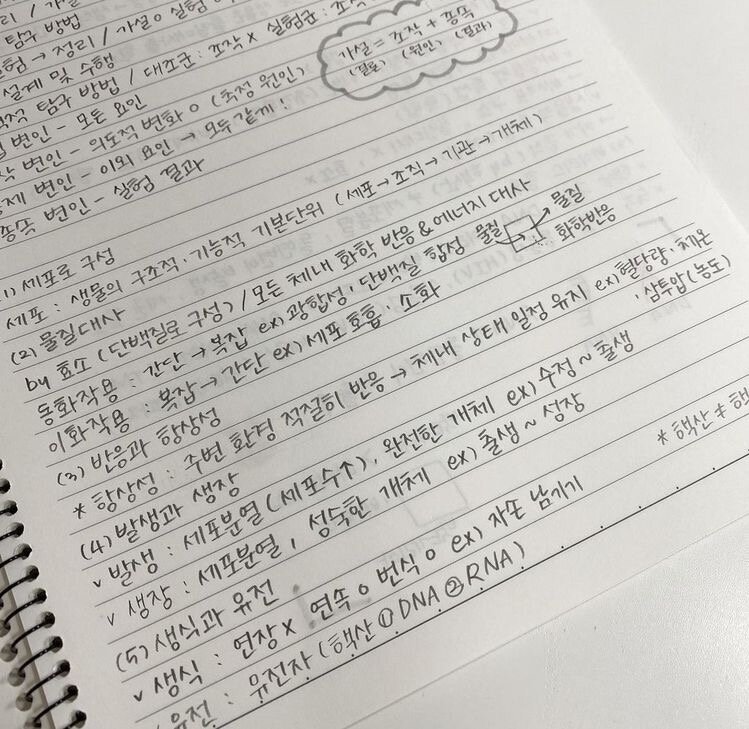 탐구 방법
→ 정리 / 가설 o 실험
설계 및 수행
탐구 방법 / 대조군 : 조작 x 실험군 : 조작
변인 - 모든 요인
변인 - 의도적 변화 o (측정 원인)
변인 - 이외 요인 → 모두 같게!
종속 변인 - 실험 결과
가설 = 조작 + 종속
(결론) (원인) (결과)
(1) 세포로 구성
세포 : 생물의 구조적·기능적 기본단위 (세포→조직→기관→개체)
(2) 물질대사
by 효소 (단백질로 구성) / 모든 체내 화학 반응 & 에너지 대사
동화작용 : 간단 → 복잡 ex) 광합성·단백질 합성 물질 물질
화학반응
이화작용 : 복잡 → 간단 ex) 세포 호흡·소화
(3) 반응과 항상성
* 항상성 : 주변 환경 적절히 반응 → 체내 상태 일정 유지 ex) 혈당량·체온
·삼투압(농도)
(4) 발생과 생장
v 발생 : 세포분열 (세포수↑), 완전한 개체 ex) 수정 ~ 출생
v 생장 : 세포분열, 성숙한 개체 ex) 출생 ~ 성장
* 핵산 ≠ 핵
(5) 생식과 유전
v 생식 : 연장 x 연속 o 번식 o ex) 자손 남기기
유전 : 유전자 (핵산 ① DNA ② RNA)